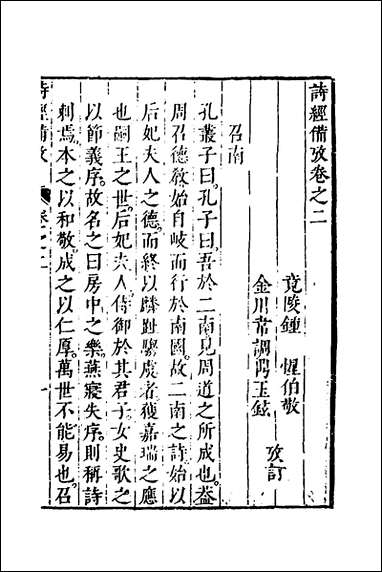 詩經備攷卷之二
竟陵鍾　惺伯敬
金川韋調鼎玉鉉
攷訂
召南
孔叢子曰孔子曰吾於二南見周道之所成也葢
周召德敎始自岐而行於南國故二南之詩始以
后妃夫人之德而終以麟趾騶虞者獲嘉瑞之應
也嗣王之世后妃夫人侍御於其君子女史歌之
以節義序故名之曰房中之樂燕寢失序則稱詩
刺焉本之以和敬成之以仁厚萬世不能易也召
詩經備攷
卷之二
一